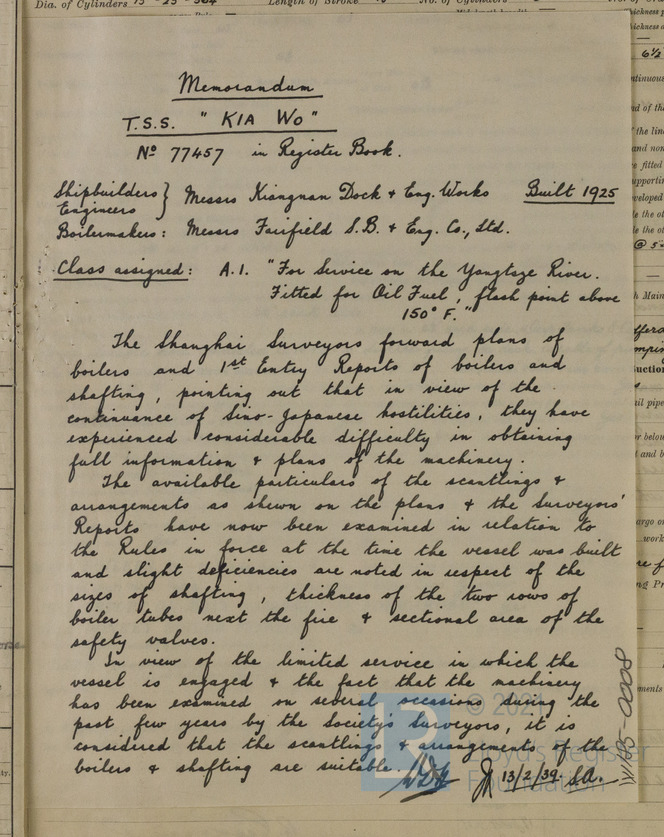 Dia. of Cylinders 13 - 23 - 36 Length of Stroke No. of Cylinders
Memorandum
T.S.S. "KIA WO"
No 77457 in Register Book.
Shipbuilders } Messrs Kiangnan Dock & Eng. Works Built 1925
Engineers
Boilermakers: Messrs Fairfield S.B. & Eng. Co., Ltd.
Class assigned: A.1. "For Service on the Yangtsze River.
Fitted for Oil Fuel, flash point above
150° F."
The Shanghai Surveyors forward plans of
boilers and 1st Entry Reports of boilers and
shafting, pointing out that in view of the
continuance of Sino-Japanese hostilities, they have
experienced considerable difficulty in obtaining
full information & plans of the machinery.
The available particulars of the scantlings &
arrangements as shewn on the plans & the Surveyors'
Reports have now been examined in relation to
the Rules in force at the time the vessel was built
and slight deficiencies are noted in respect of the
sizes of shafting, thickness of the two rows of
boiler tubes next the fire & sectional area of the
safety valves.
In view of the limited service in which the
vessel is engaged & the fact that the machinery
has been examined on several occasions during the
past few years by the Society's Surveyors, it is
considered that the scantlings & arrangements of the
boilers & shafting are suitable.
13/2/39. S.A.
© 2021
Lloyd's Register
Foundation